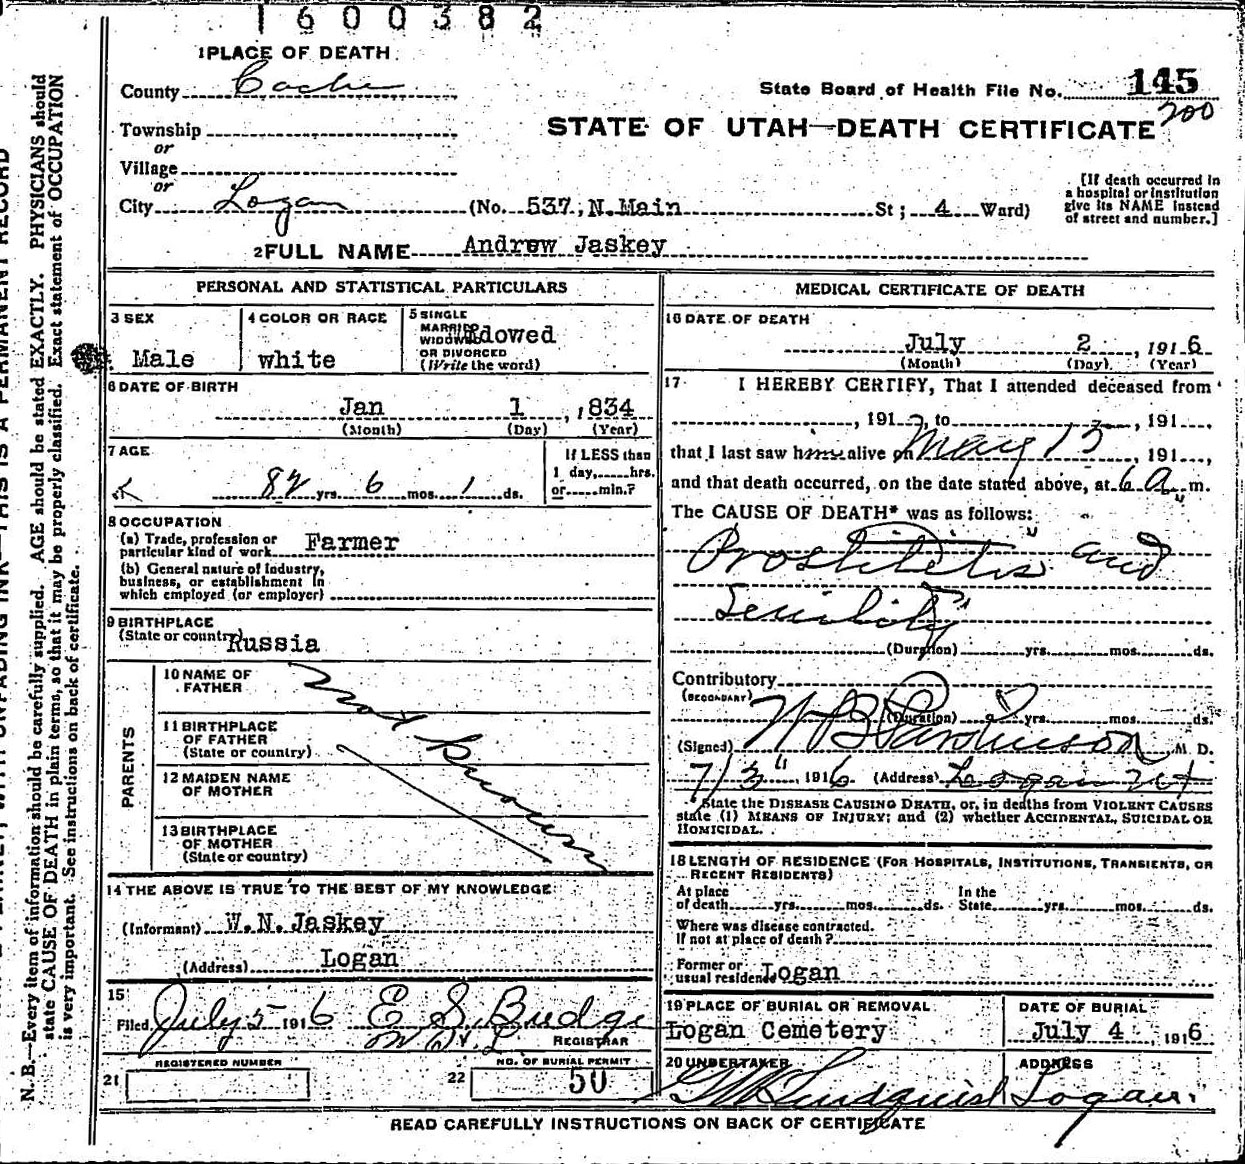 1600382
1 PLACE OF DEATH
County Cache
State Board of Health File No. 145
200
Township
STATE OF UTAH—DEATH CERTIFICATE
or
Village
or
City Logan (No. 537, N. Main St; 4 Ward)
[If death occurred in
a hospital or institution
give its NAME instead
of street and number.]
2 FULL NAME Andrew Jaskey
PERSONAL AND STATISTICAL PARTICULARS
3 SEX
Male
4 COLOR OR RACE
white
5 SINGLE
MARRIED
WIDOWED
OR DIVORCED
(Write the word)
Widowed
6 DATE OF BIRTH
Jan 1, 1834
(Month) (Day) (Year)
7 AGE
82 yrs. 6 mos. 1 ds.
If LESS than
1 day, hrs.
or min.?
8 OCCUPATION
(a) Trade, profession or
particular kind of work Farmer
(b) General nature of Industry,
business, or establishment in
which employed (or employer)
9 BIRTHPLACE
(State or country) Russia
PARENTS
10 NAME OF
FATHER
11 BIRTHPLACE
OF FATHER
(State or country)
12 MAIDEN NAME
OF MOTHER
13 BIRTHPLACE
OF MOTHER
(State or country)
not known
14 THE ABOVE IS TRUE TO THE BEST OF MY KNOWLEDGE
(Informant) W. N. Jaskey
(Address) Logan
15
Filed July 5 1916 E S. Budge
REGISTRAR
REGISTERED NUMBER
21
NO. OF BURIAL PERMIT
22 50
MEDICAL CERTIFICATE OF DEATH
16 DATE OF DEATH
July 2, 1916
(Month) (Day) (Year)
17 I HEREBY CERTIFY, That I attended deceased from
, 191 , to , 191 ,
that I last saw him alive on May 15, 191 ,
and that death occurred, on the date stated above, at 6 A. m.
The CAUSE OF DEATH* was as follows:
Prostitetis and
Senibity
(Duration) yrs. mos. ds.
Contributory
(SECONDARY)
(Duration) yrs. mos. ds.
(Signed) W B Parkinson M. D.
7/3", 1916 (Address) Logan Ut
*State the DISEASE CAUSING DEATH, or, in deaths from VIOLENT CAUSES
state (1) MEANS OF INJURY; and (2) whether ACCIDENTAL, SUICIDAL OR
HOMICIDAL.
18 LENGTH OF RESIDENCE (FOR HOSPITALS, INSTITUTIONS, TRANSIENTS, OR
RECENT RESIDENTS)
At place
of death yrs. mos. ds.
In the
State yrs. mos. ds.
Where was disease contracted.
If not at place of death?
Former or
usual residence Logan
19 PLACE OF BURIAL OR REMOVAL
Logan Cemetery
DATE OF BURIAL
July 4, 1916
20 UNDERTAKER
Lindquist
ADDRESS
Logan.
READ CAREFULLY INSTRUCTIONS ON BACK OF CERTIFICATE
N. B.—Every item of information should be carefully supplied. AGE should be stated EXACTLY. PHYSICIANS should
state CAUSE OF DEATH in plain terms, so that it may be properly classified. Exact statement of OCCUPATION
is very important. See instructions on back of certificate.
UNFADING INK—THIS IS A PERMANENT RECORD